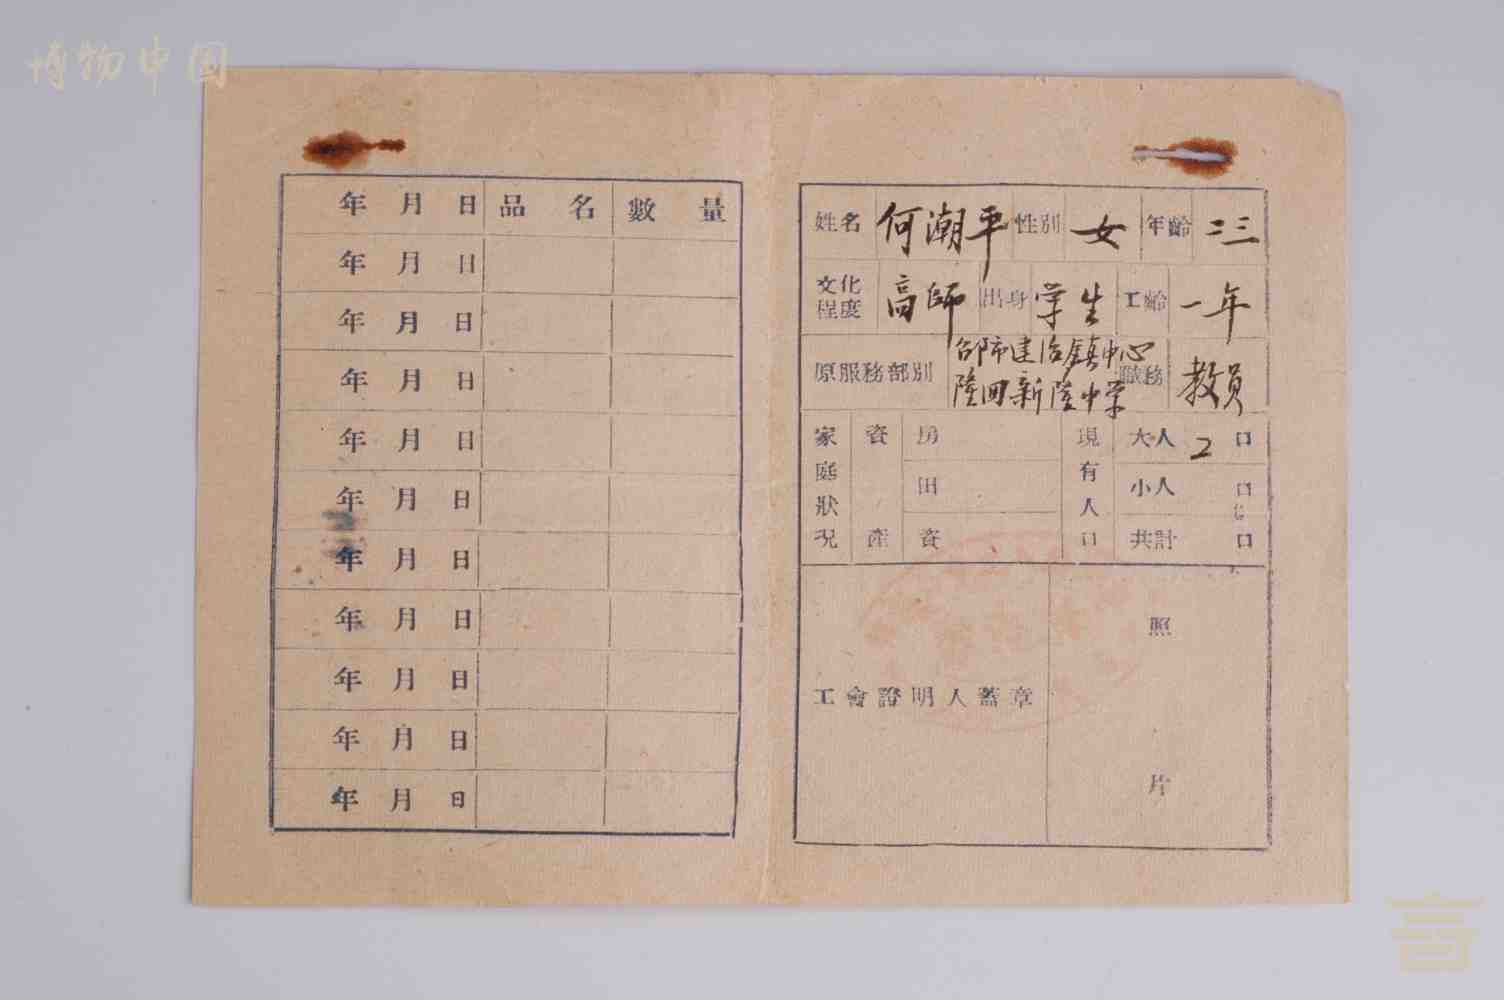 博物中国
年 月 日 品 名 數 量
年 月 日
年 月 日
年 月 日
年 月 日
年 月 日
年 月 日
年 月 日
年 月 日
年 月 日
年 月 日
姓名 何潮平 性别 女 年齡 二三
文化程度 高師 出身 学生 工齡 一年
原服務部別 邵陽建治鎮中心 職務 教員
隆回新隆中学
家庭狀況 資產 房 現有人口 大人 2 口
田 小人 口
資 共計 口
工會證明人蓋章 照片